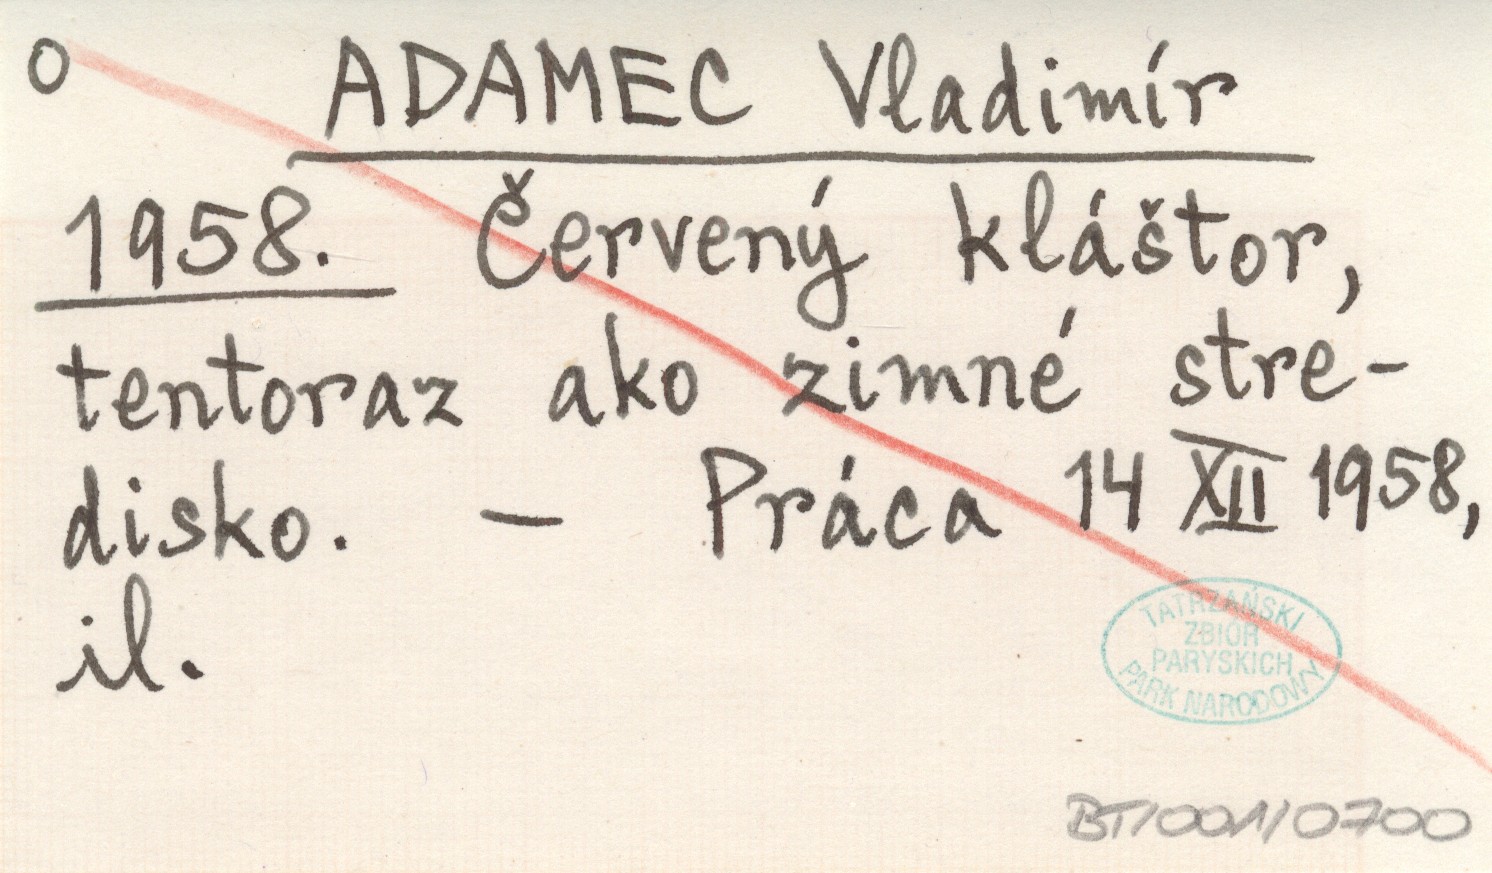 O ADAMEC Vladimír
1958. Červený kláštor,
tentoraz ako zimné stre-
disko. — Práca 14 XII 1958,
il.
TATRZAŃSKI
ZBIÓR
PARYSKICH
PARK NARODOWY
BT/001/0700